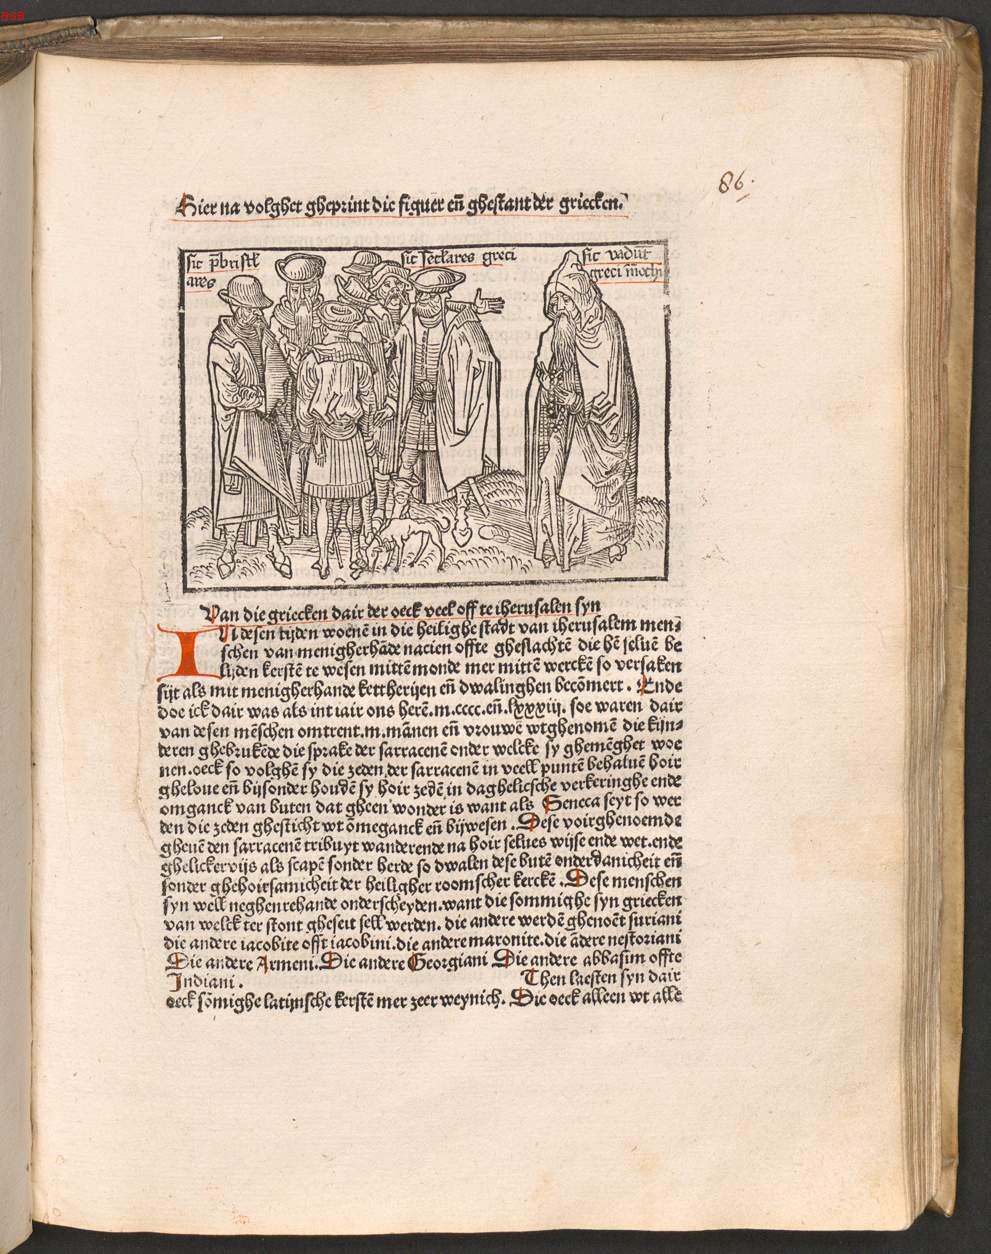 868
86.
Hier na volghet gheprint die figuer en̄ ghestant der griecken.
sic p̄bristł
ares
sic seclares greci
sic vadūt
greci mōchi
Van die griecken dair der oeck veel off te iherusalen syn
IN desen tijden woenē in die heilighe stadt van iherusalem men⸗
schen van menigherhāde nacien offte gheslachtē die hē seluē be
lijden kerstē te wesen mittē monde mer mittē werckē so versaken
sijt als mit menigherhande kettherijen en̄ dwalinghen becōmert . Ende
doe ick dair was als int iair ons herē.m.cccc.en̄.lxxxiij. soe waren dair
van desen mēschen omtrent.m.mānen en̄ vrouwē wtghenomē die kijn⸗
deren ghebrukēde die sprake der sarracenē onder welcke sy ghemēghet woe
nen.oeck so volghē sy die zeden der sarracenē in veell puntē behaluē hoir
gheloue en̄ bijsonder houdē sy hoir zedē in daghelicsche verkeringhe ende
omganck van buten dat gheen wonder is want als Seneca seyt so wer
den die zeden ghesticht wt ōmeganck en̄ bijwesen . Dese voirghenoemde
gheuē den sarracenē tribuyt wanderende na hoir selues wijse ende wet.ende
ghelickerwijs als scapē sonder herde so dwalen dese butē onderdanicheit en̄
sonder ghehoirsamicheit der heiligher roomscher kerckē . Dese menschen
syn well neghenrehande onderscheyden.want die sommighe syn griecken
van welck ter stont gheseit sell werden. die andere werdē ghenoēt suriani
die andere iacobite offt iacobini.die andere maronite.die ādere nestoriani
Die andere Armeni.Die andere Georgiani Die andere abbasini offte
Indiani . Then laesten syn dair
oeck sōmighe latijnsche kerstē mer zeer weynich. Die oeck alleen wt alle